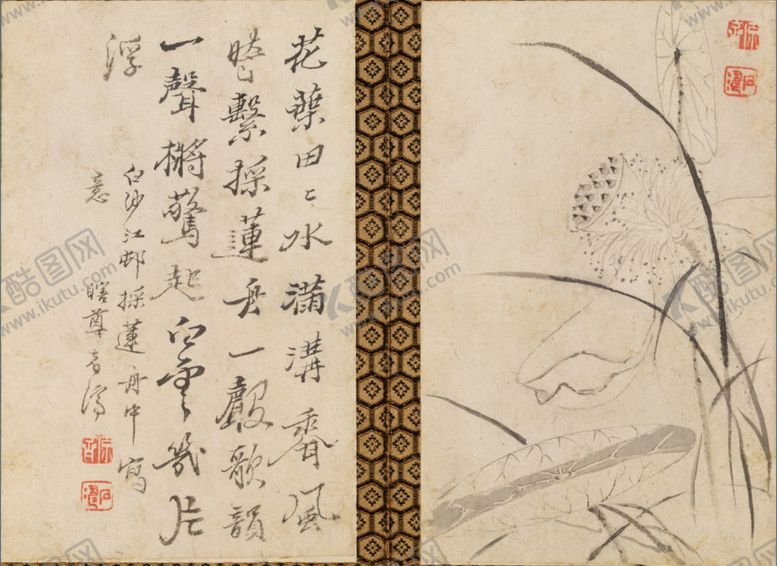 花葉田〻水滿溝香風
繫採蓮舟一殸歌韻
一聲槳驚起白雲幾片
浮
白沙江邨採蓮舟中寫
意
瞎尊者濟
酷图网
www.ikutu.com